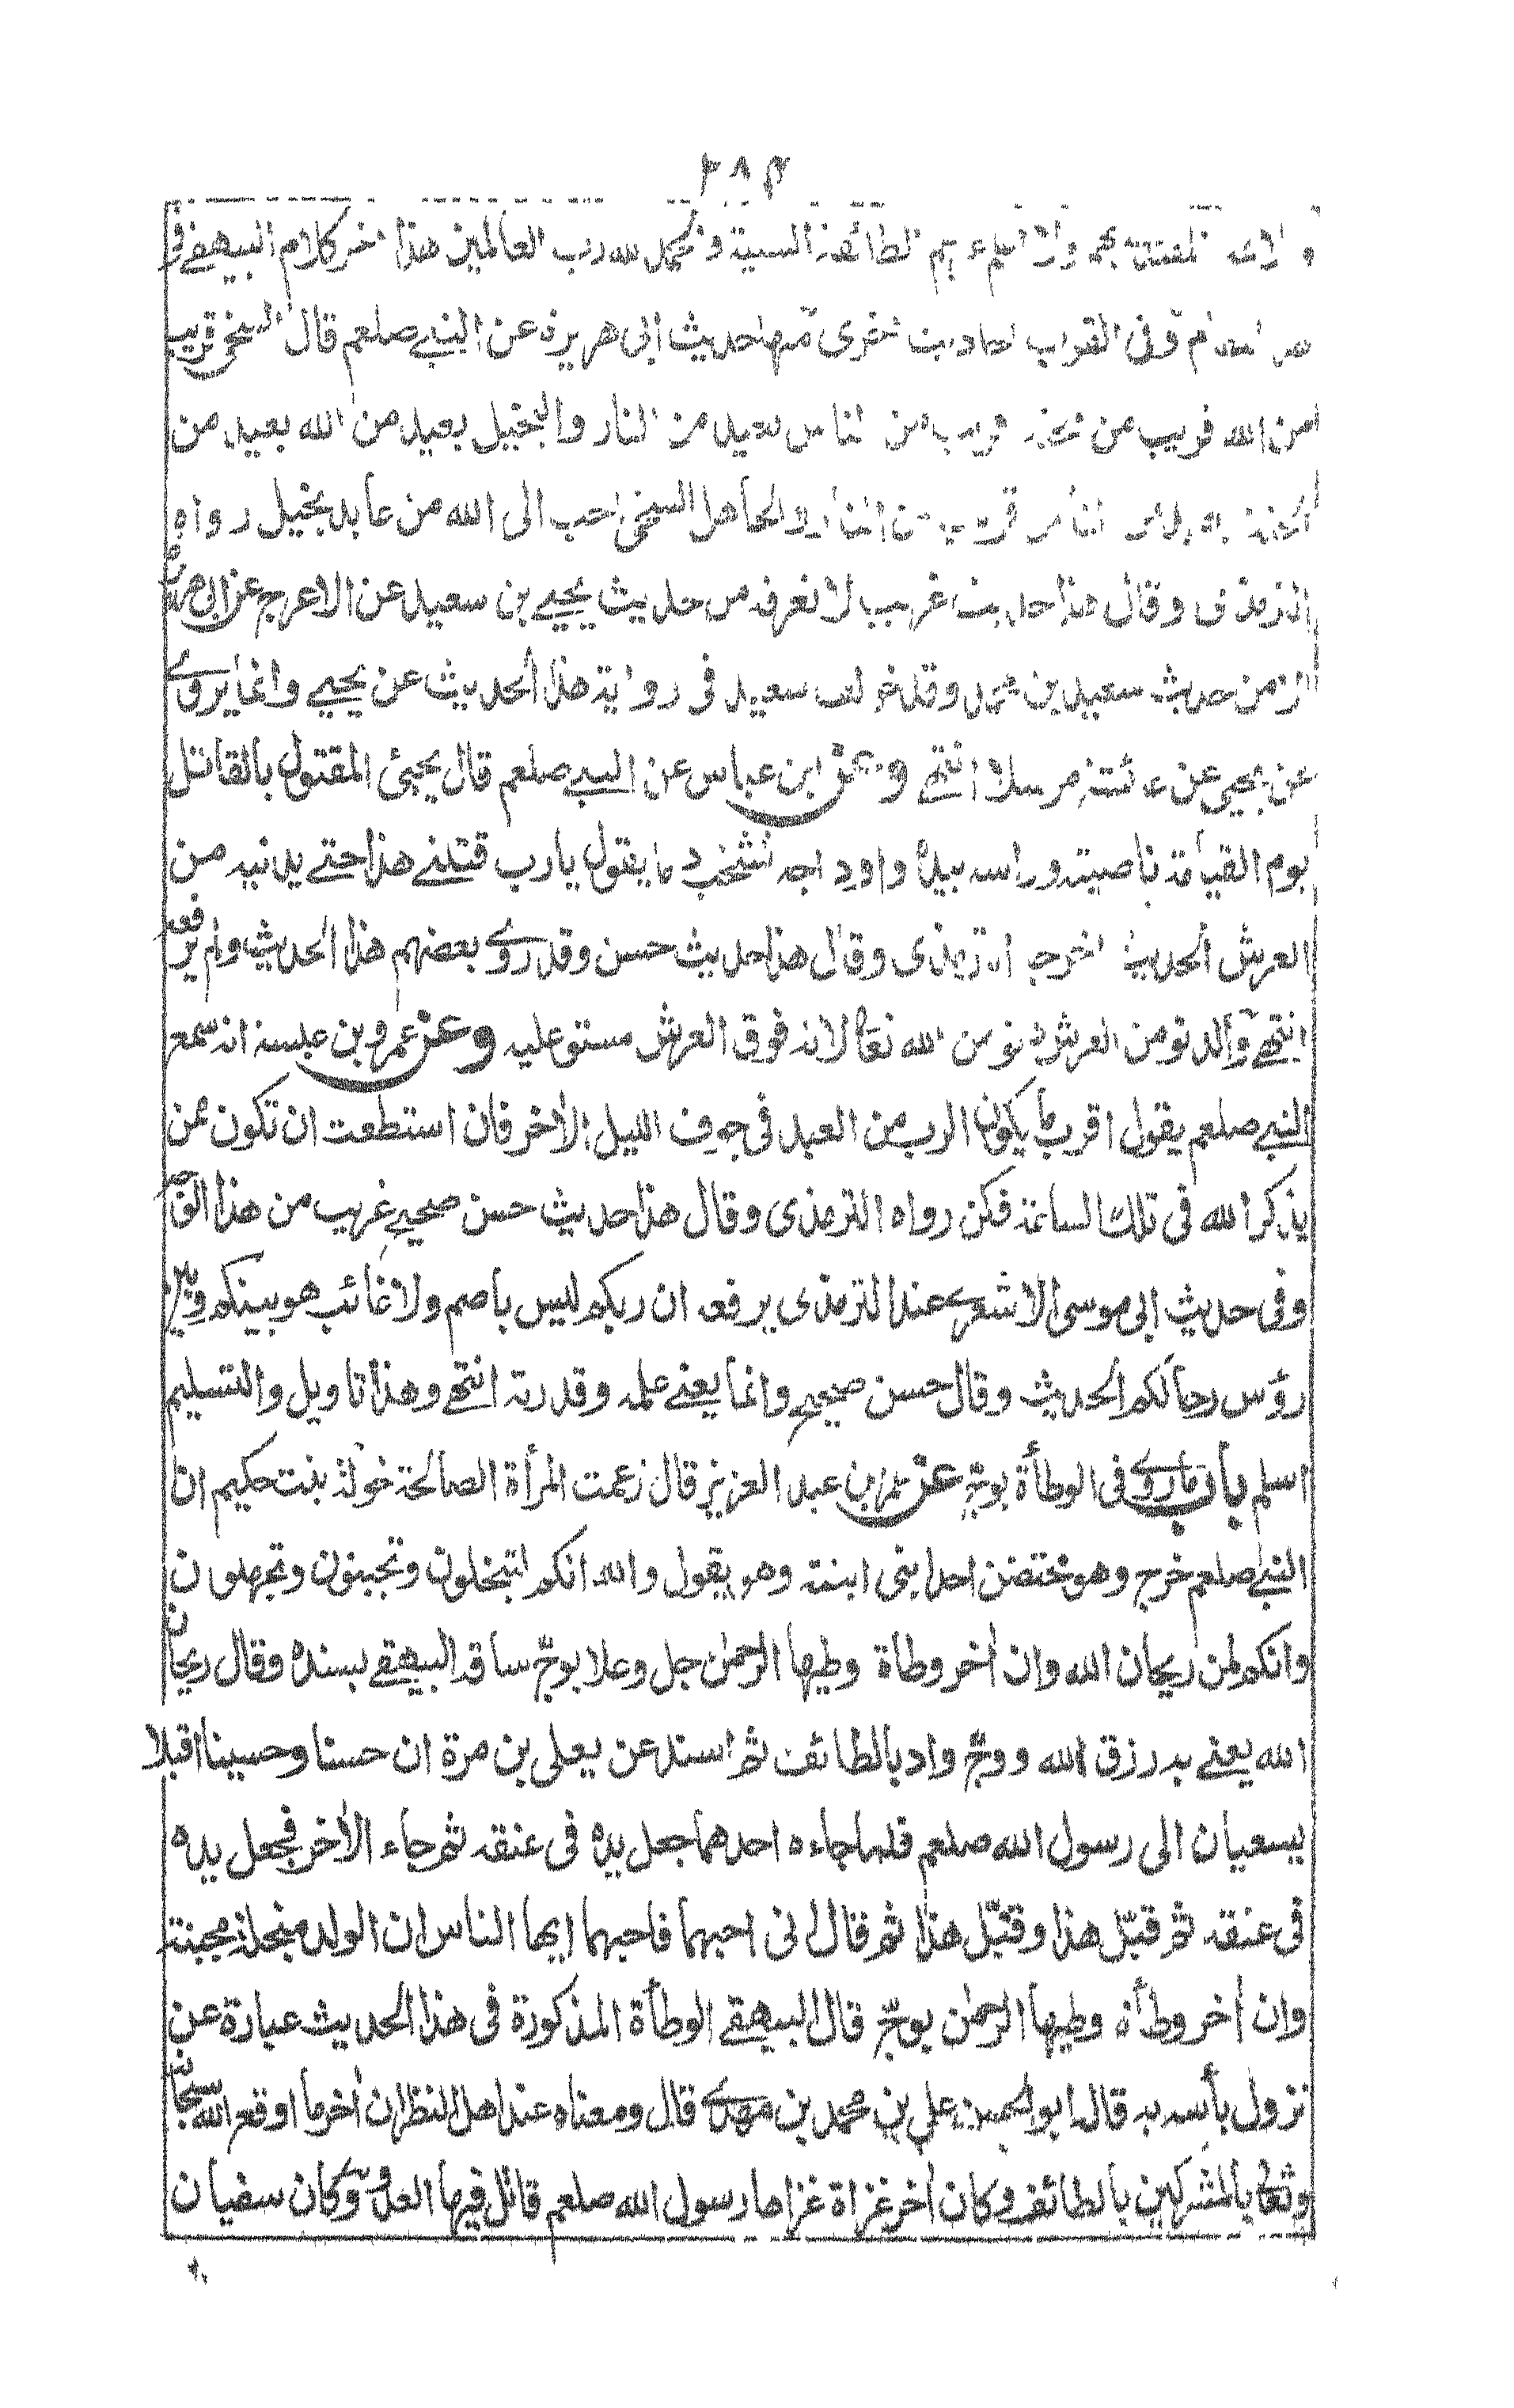 ٢٨٣
والائمة المقتدى بهم والاسلم عندهم الطائفة السنية والحمد لله رب العالمين هذا اخر كلام البيهقے فی
هذا المقام وفی القرب احاديث اخرى منها حديث ابی هريرة عن النبے صلعم قال السخی قريب
من الله قريب من الجنة قريب من الناس بعيد من النار والبخيل بعيد من الله بعيد من
الجنة بعيد من الناس قريب من النار والجاهل السخی احب الی الله من عابد بخيل رواه
الترمذی وقال هذا حديث غريب لا نعرفه من حديث يحيے بن سعيد عن الاعرج عن ابی هريرة
الا من حديث سعيد بن محمد وقد خولف سعيد فی رواية هذا الحديث عن يحيے وانما يروے
عن يحيی عن عائشة مرسلا انتهے وعن ابن عباس عن النبے صلعم قال يجیئ المقتول بالقاتل
يوم القيامة ناصيته وراسه بيده واوداجه تشخب دما يقول يارب قتلنے هذا حتے يدنيه من
العرش الحديث اخرجه الترمذی وقال هذا حديث حسن وقد روے بعضهم هذا الحديث ولم يرفعه
انتهے والدنو من العرش دنو من الله تعالى لانه فوق العرش مستو عليه وعن عمرو بن عبسة انه سمع
النبے صلعم يقول اقرب ما يكون الرب من العبد فی جوف الليل الاٰخر فان استطعت ان تكون ممن
يذكر الله فی تلك الساعة فكن رواه الترمذی وقال هذا حديث حسن صحيح غريب من هذا الوجه
وفی حديث ابی موسى الاشعرے عند الترمذی يرفعه ان ربكم ليس باصم ولا غائب هو بينكم وبين
رؤس رحالكم الحديث وقال حسن صحيح وانما يعنے علمه وقدرته انتهے وهذا تاويل والتسليم
اسلم باب ما روے فی الوطأة بوجّ عن عمر بن عبد العزيز قال زعمت المرأة الصالحة خولة بنت حكيم ان
النبے صلعم خرج وهو محتضن احد ابنی ابنته وهو يقول والله انكم لتبخلون وتجبنون وتجهلون
وانكم لمن ريحان الله وان اٰخر وطاة وطيها الرحمٰن جل وعلا بوجّ ساقه البيهقے بسنده وقال ريحان
الله يعنے به رزق الله ووجّ واد بالطائف ثم اسند عن يعلی بن مرة ان حسنا وحسينا اقبلا
يسعيان الی رسول الله صلعم فلما جاءه احدهما جعل يده فی عنقه ثم جاء الاٰخر فجعل يده
فی عنقه ثم قبّل هذا وقبّل هذا ثم قال انی احبهما فاحبهما ايها الناس ان الولد مبخلة مجبنة
وان اٰخر وطأة وطيها الرحمٰن بوجّ قال البيهقے الوطأة المذكورة فی هذا الحديث عبارة عن
نزول بأسه به قال ابو الحسين علی بن محمد بن مهدے قال ومعناه عند اهل النظر ان اٰخر ما اوقع الله سبحانه
وتعالى بالمشركين بالطائف وكان اٰخر غزاة غزاها رسول الله صلعم قاتل فيها العدو وكان سفيان